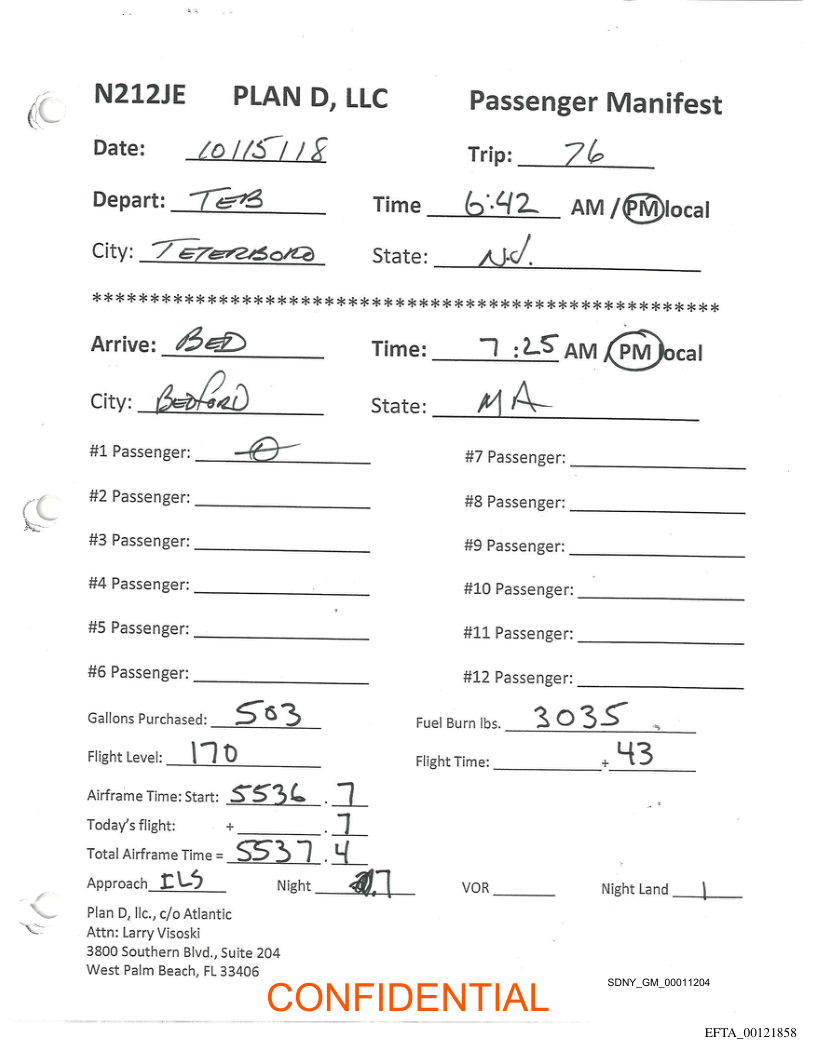 N212JE PLAN D, LLC Passenger Manifest
Date: 10/15/18 Trip: 76
Depart: TEB Time 6:42 AM / PM local
City: TETERBORO State: N.J.
****************************************************
Arrive: BED Time: 7:25 AM / PM local
City: BEDFORD State: MA
#1 Passenger: 0 #7 Passenger:
#2 Passenger: #8 Passenger:
#3 Passenger: #9 Passenger:
#4 Passenger: #10 Passenger:
#5 Passenger: #11 Passenger:
#6 Passenger: #12 Passenger:
Gallons Purchased: 503 Fuel Burn lbs. 3035
Flight Level: 170 Flight Time: + 43
Airframe Time: Start: 5536 . 7
Today's flight: + . 7
Total Airframe Time = 5537 . 4
Approach ILS Night .7 VOR Night Land 1
Plan D, llc., c/o Atlantic
Attn: Larry Visoski
3800 Southern Blvd., Suite 204
West Palm Beach, FL 33406
SDNY_GM_00011204
CONFIDENTIAL
EFTA_00121858